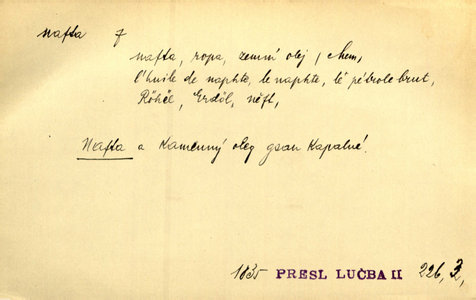 nafta f
nafta, ropa, zemní olej, chem,
l'huile de naphte, le naphte, le pétrole brut,
Röhöl, Erdöl, něft,
Nafta a Kamenný oleg gsau Kapalné.
1835 PRESL LUČBA II 226, 3,